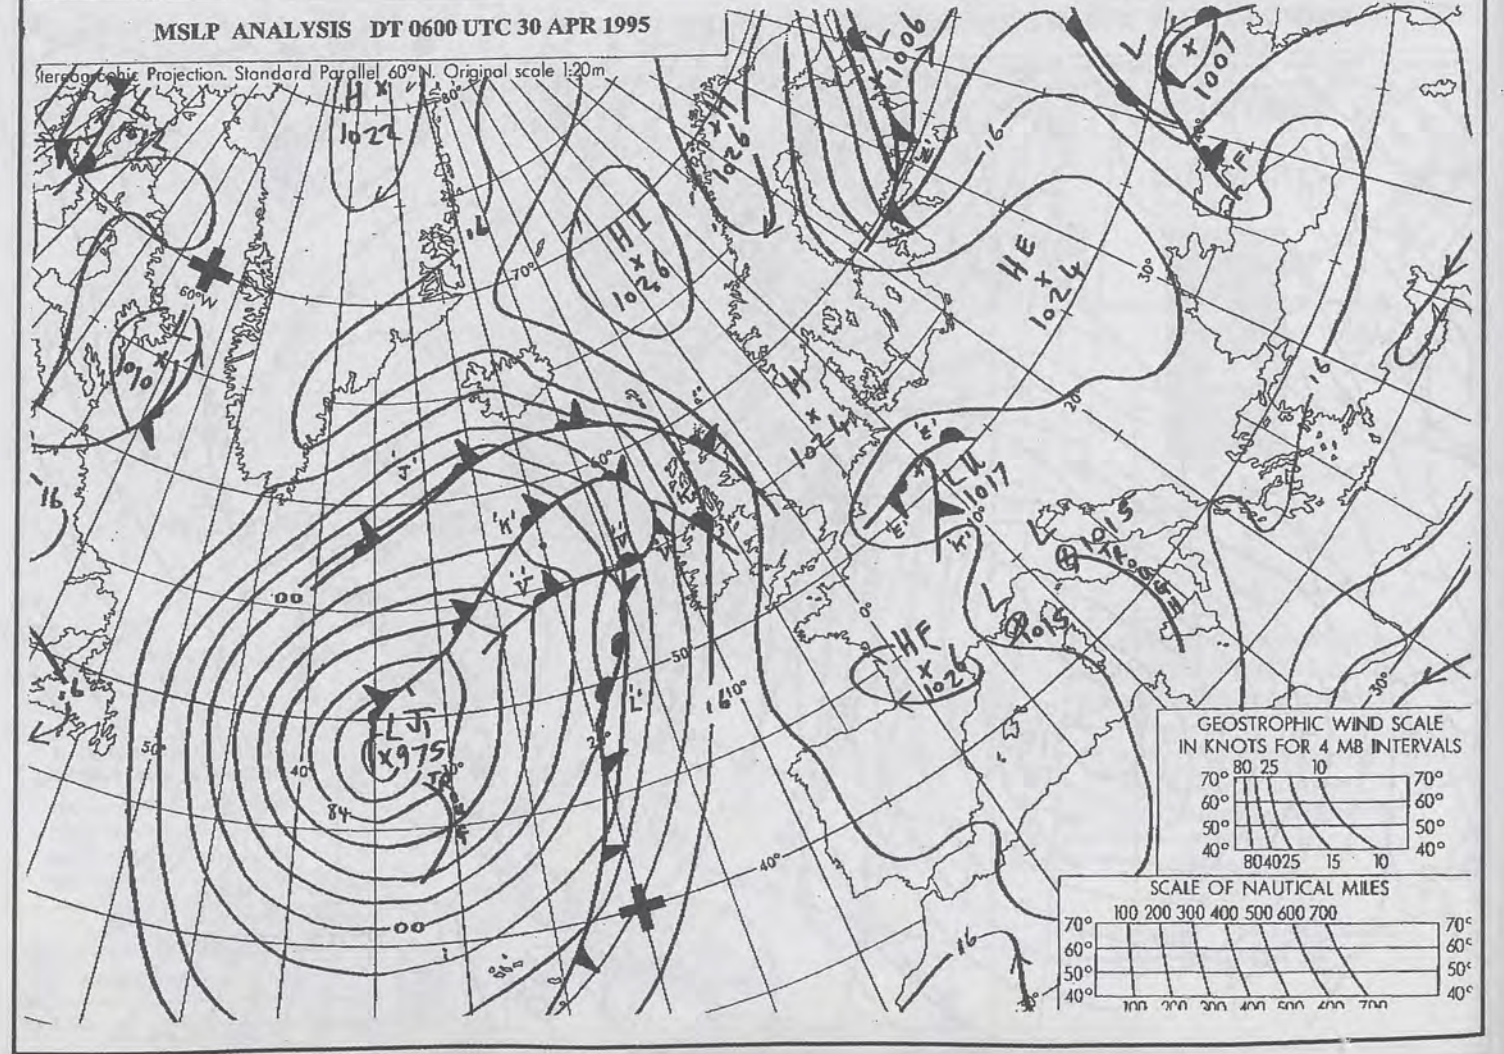 MSLP ANALYSIS DT 0600 UTC 30 APR 1995
Stereographic Projection. Standard Parallel 60°N. Original scale 1:20m
H
1022
80°
L
1006
H
1026
L
1007
16
'E'
'F'
HI
1026
70°
HE
1024
30°
60°W
1010
16
H
1024
20°
'E'
LK
1017
10°
'E'
'K'
L
1015
TROUGH
L
1015
0°
HF
1026
16
'J'
60°
'K'
'V'
'V'
00
50°
'L'
10°
16
30°
L J1
975
30°
40°
50°
84
20°
40°
00
16
GEOSTROPHIC WIND SCALE
IN KNOTS FOR 4 MB INTERVALS
80 25 10
70° 70°
60° 60°
50° 50°
40° 40°
80 40 25 15 10
SCALE OF NAUTICAL MILES
100 200 300 400 500 600 700
70° 70°
60° 60°
50° 50°
40° 40°
100 200 300 400 500 600 700